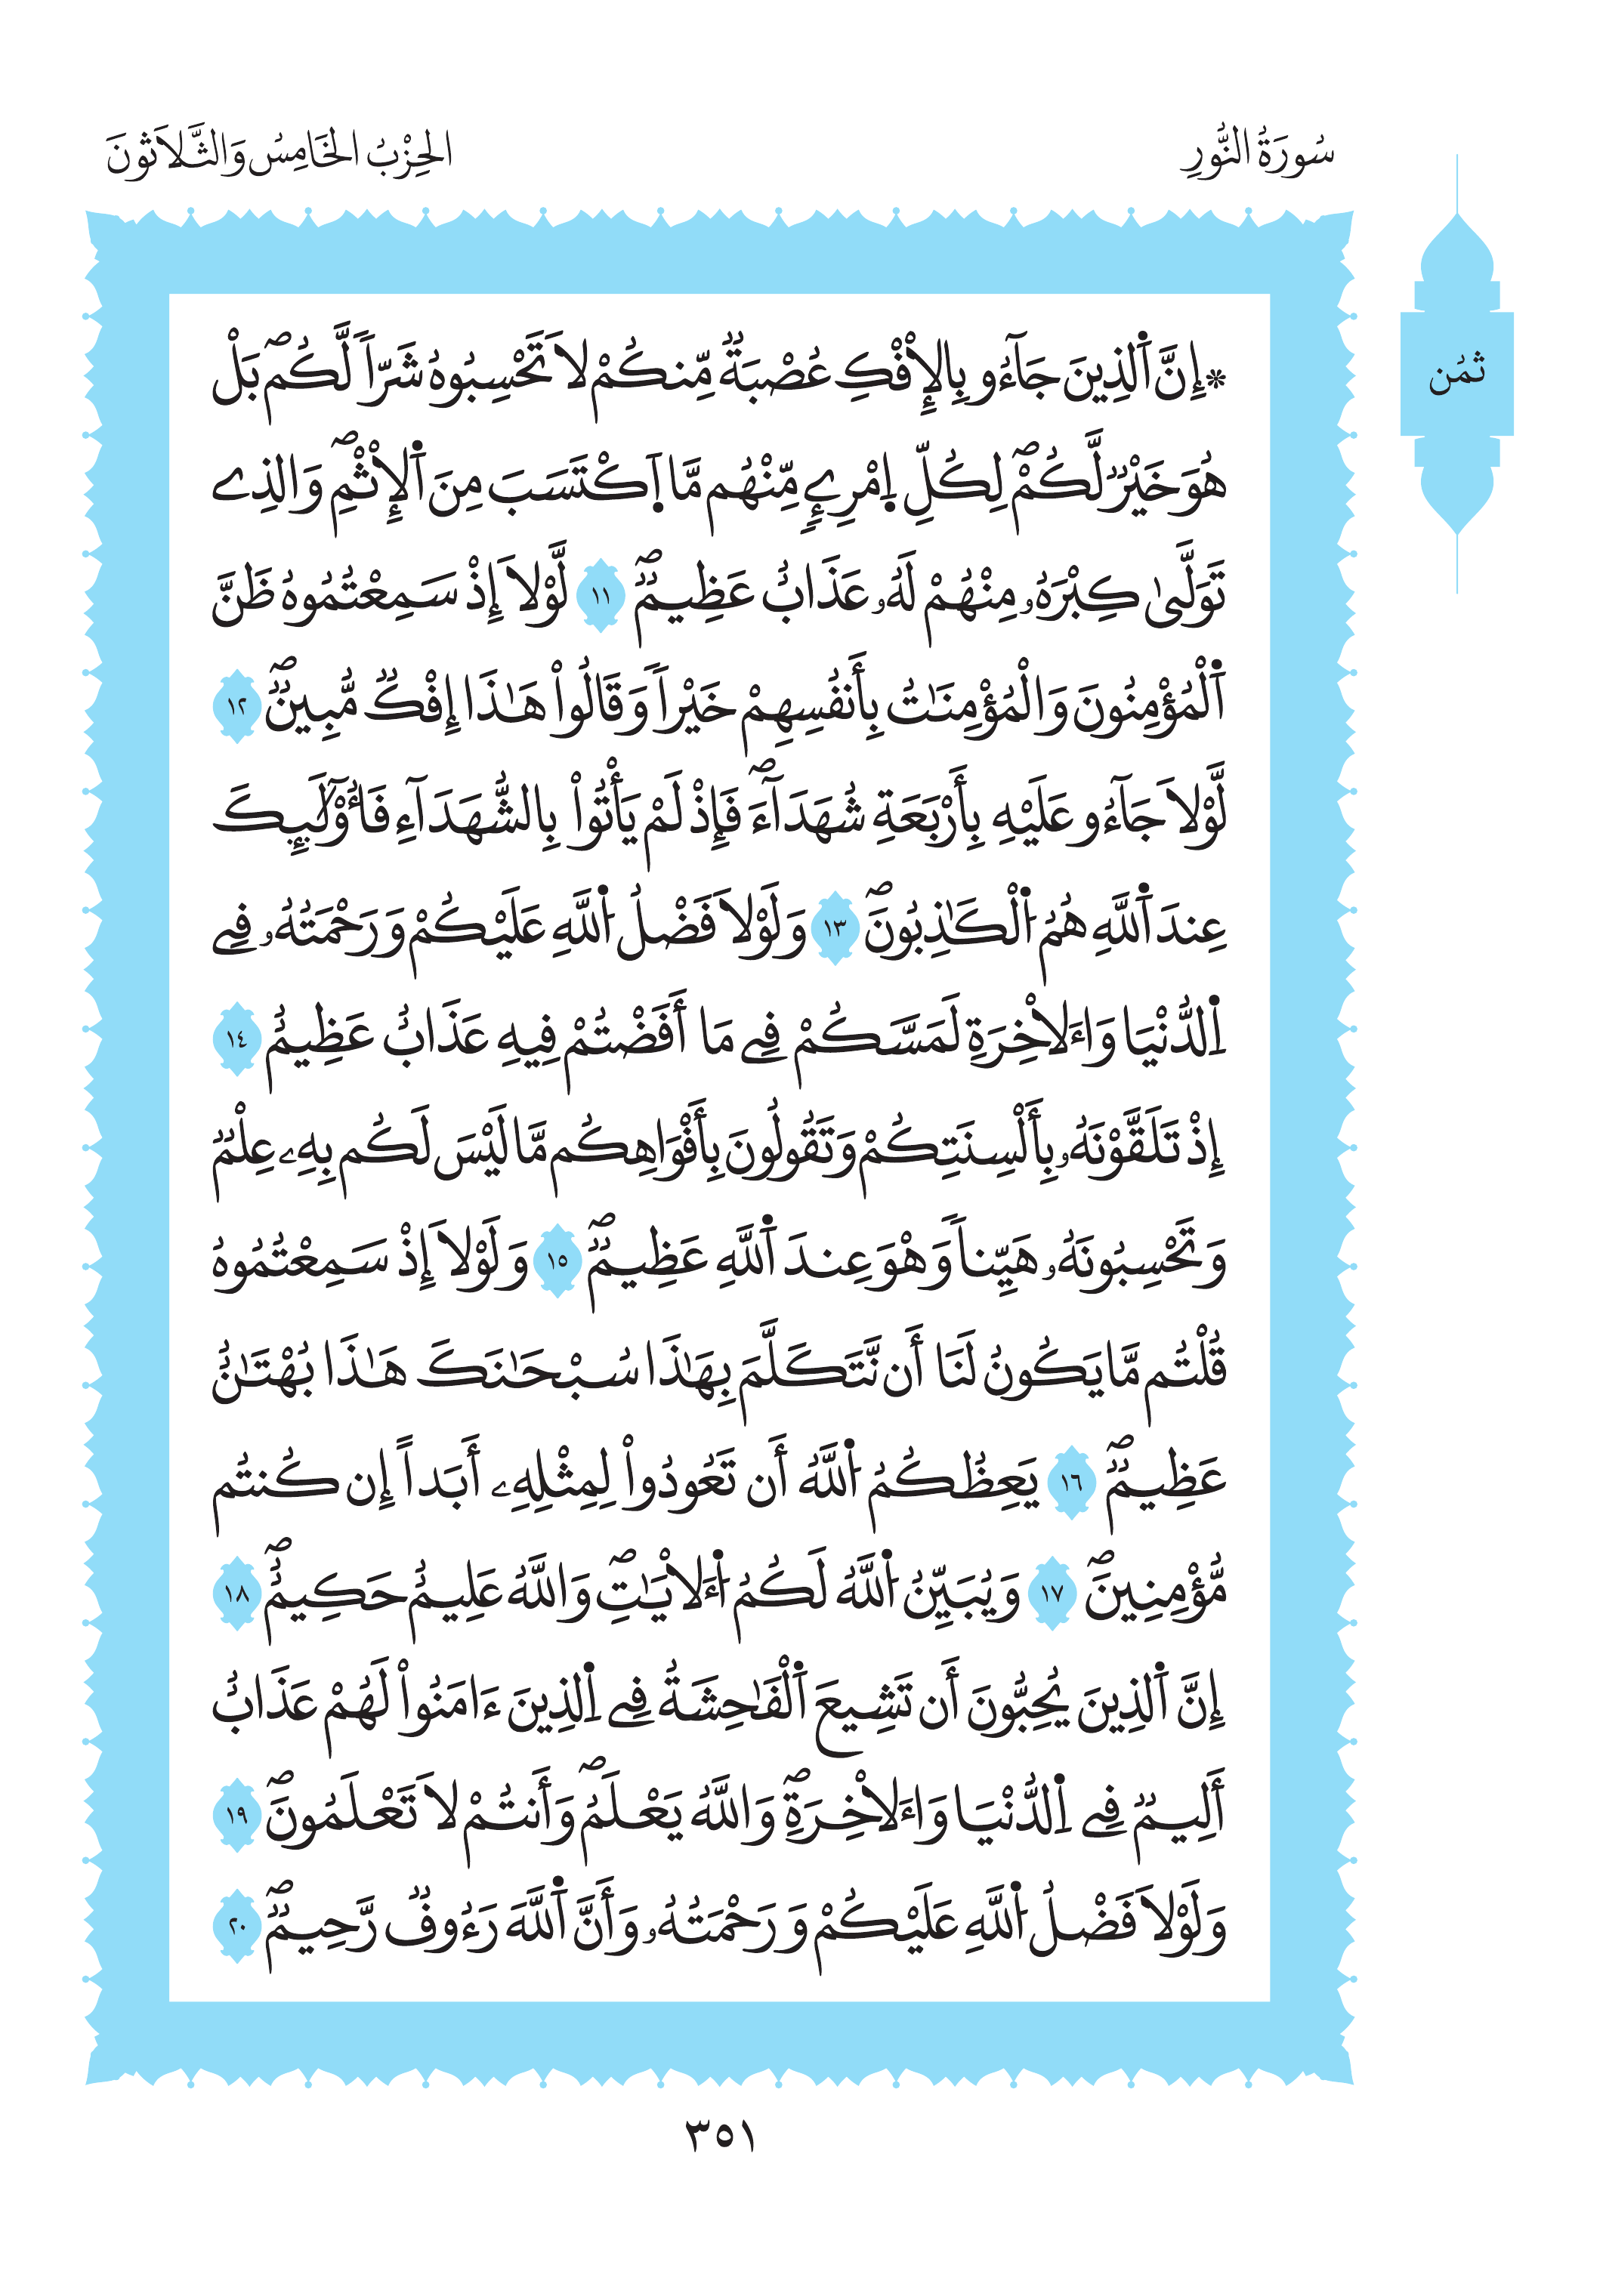 سُورَةُ النُّورِ
الحِزْبُ الخَامِسُ وَالثَّلَاثُونَ
ثمُن
*إِنَّ اَ۬لذِينَ جَآءُو بِالِافْكِ عُصْبَةٞ مِّنكُمْ لَا تَحْسِبُوهُ شَرّاٗ لَّكُمۖ بَلْ
هُوَ خَيْرٞ لَّكُمْۖ لِكُلِّ اِ۪مْرِےٕٖ مِّنْهُم مَّا اَ۪كْتَسَبَ مِنَ اَ۬لِاثْمِۖ وَالذِے
تَوَلَّىٰ كِبْرَهُۥ مِنْهُمْ لَهُۥ عَذَابٌ عَظِيمٞۖ ١١ لَّوْلَا إِذْ سَمِعْتُمُوهُ ظَنَّ
اَ۬لْمُؤْمِنُونَ وَالْمُؤْمِنَٰتُ بِأَنفُسِهِمْ خَيْراٗ وَقَالُواْ هَٰذَا إِفْكٞ مُّبِينٞۖ ١٢
لَّوْلَا جَآءُو عَلَيْهِ بِأَرْبَعَةِ شُهَدَآءَۖ فَإِذْ لَمْ يَأْتُواْ بِالشُّهَدَآءِ فَأُوْلَٰٓئِكَ
عِندَ اَ۬للَّهِ هُمُ اُ۬لْكَٰذِبُونَۖ ١٣ وَلَوْلَا فَضْلُ اُ۬للَّهِ عَلَيْكُمْ وَرَحْمَتُهُۥ فِے
اِ۬لدُّنْيَا وَاءَلَاخِرَةِ لَمَسَّكُمْ فِے مَا أَفَضْتُمْ فِيهِ عَذَابٌ عَظِيمٌ ١٤
إِذْ تَلَقَّوْنَهُۥ بِأَلْسِنَتِكُمْ وَتَقُولُونَ بِأَفْوَاهِكُم مَّا لَيْسَ لَكُم بِهِۦ عِلْمٞ
وَتَحْسِبُونَهُۥ هَيِّناٗ وَهْوَ عِندَ اَ۬للَّهِ عَظِيمٞۖ ١٥ وَلَوْلَا إِذْ سَمِعْتُمُوهُ
قُلْتُم مَّا يَكُونُ لَنَا أَن نَّتَكَلَّمَ بِهَٰذَا سُبْحَٰنَكَ هَٰذَا بُهْتَٰنٌ
عَظِيمٞۖ ١٦ يَعِظُكُمُ اُ۬للَّهُ أَن تَعُودُواْ لِمِثْلِهِۦ أَبَداً إِن كُنتُم
مُّؤْمِنِينَۖ ١٧ وَيُبَيِّنُ اُ۬للَّهُ لَكُمُ اُ۬ءَلَايَٰتِۖ وَاللَّهُ عَلِيمٌ حَكِيمٌۖ ١٨
إِنَّ اَ۬لذِينَ يُحِبُّونَ أَن تَشِيعَ اَ۬لْفَٰحِشَةُ فِے اِ۬لذِينَ ءَامَنُواْ لَهُمْ عَذَابٌ
أَلِيمٞ فِے اِ۬لدُّنْيَا وَاءَلَاخِرَةِۖ وَاللَّهُ يَعْلَمُۖ وَأَنتُمْ لَا تَعْلَمُونَۖ ١٩
وَلَوْلَا فَضْلُ اُ۬للَّهِ عَلَيْكُمْ وَرَحْمَتُهُۥ وَأَنَّ اَ۬للَّهَ رَءُوفٞ رَّحِيمٞۖ ٢٠
٣٥١